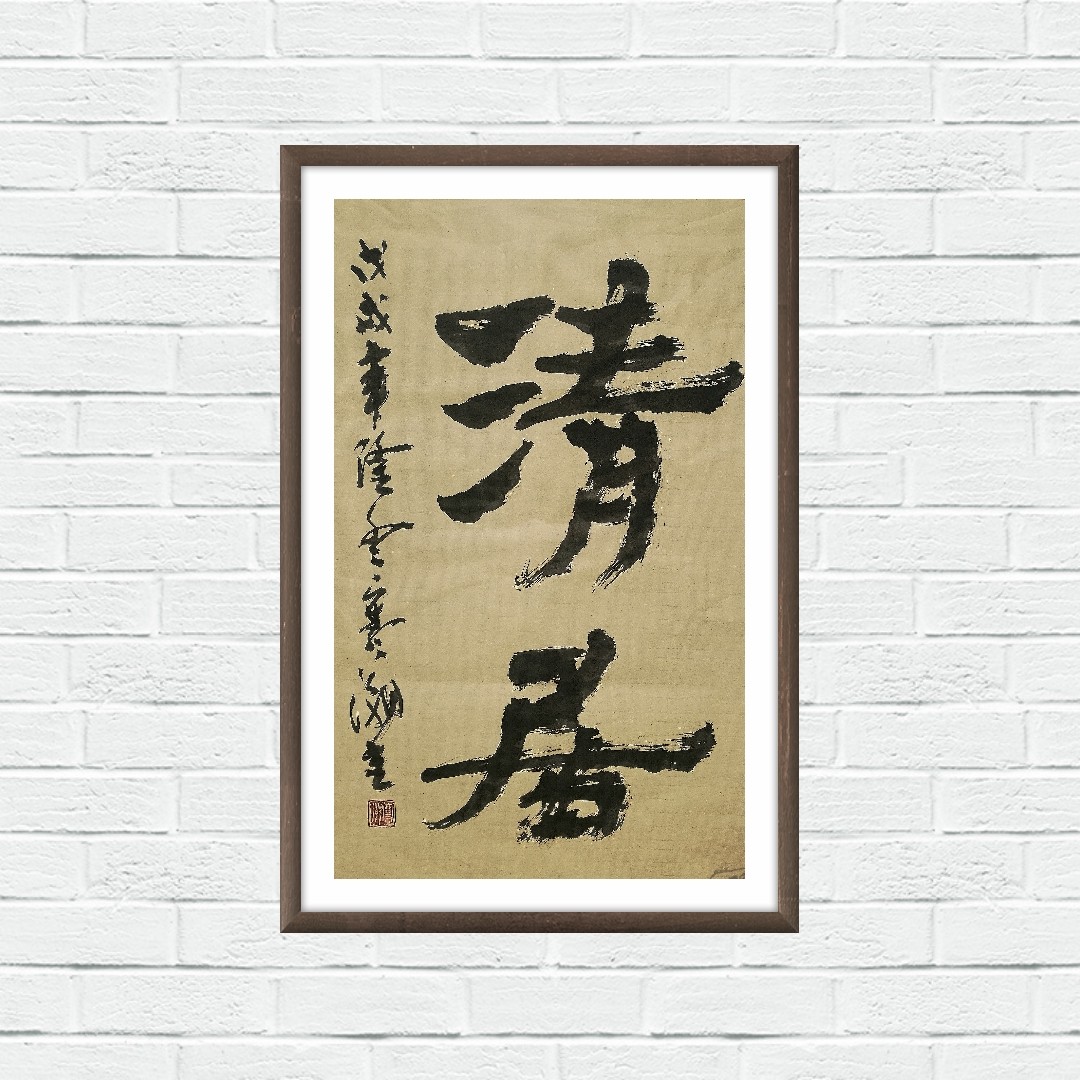 清居
戊戌年隆冬寒湖